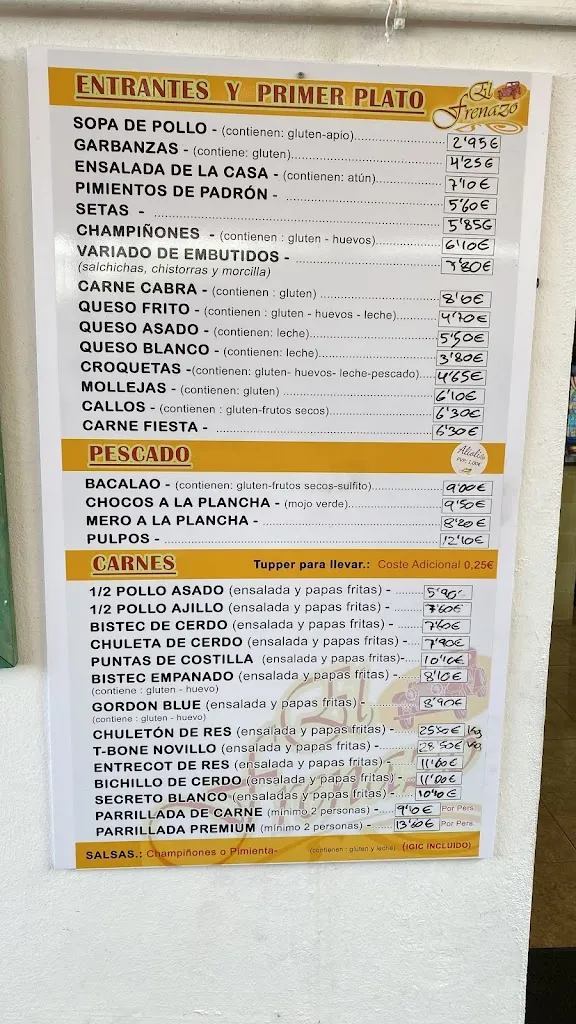 ENTRANTES Y PRIMER PLATO
El Frenazo
SOPA DE POLLO - (contienen: gluten-apio) 2'95€
GARBANZAS - (contiene: gluten) 4'25€
ENSALADA DE LA CASA - (contienen: atún) 7'10€
PIMIENTOS DE PADRÓN - 5'60€
SETAS - 5'85€
CHAMPIÑONES - (contienen : gluten - huevos) 6'10€
VARIADO DE EMBUTIDOS - 7'80€
(salchichas, chistorras y morcilla)
CARNE CABRA - (contienen : gluten)
QUESO FRITO - (contienen : gluten - huevos - leche) 4'70€
QUESO ASADO - (contienen: leche) 5'50€
QUESO BLANCO - (contienen: leche) 3'80€
CROQUETAS -(contienen: gluten- huevos- leche-pescado) 4'65€
MOLLEJAS - (contienen: gluten) 6'10€
CALLOS - (contienen : gluten-frutos secos) 6'30€
CARNE FIESTA - 6'30€
PESCADO
Aliolis
PVP. 1,00€
BACALAO - (contienen: gluten-frutos secos-sulfito) 9'00€
CHOCOS A LA PLANCHA - (mojo verde) 9'50€
MERO A LA PLANCHA - 8'20€
PULPOS - 12'10€
CARNES
Tupper para llevar.: Coste Adicional 0,25€
1/2 POLLO ASADO (ensalada y papas fritas) - 5'90
1/2 POLLO AJILLO (ensalada y papas fritas) - 7'60€
BISTEC DE CERDO (ensalada y papas fritas) - 7'60€
CHULETA DE CERDO (ensalada y papas fritas) - 7'90€
PUNTAS DE COSTILLA (ensalada y papas fritas)- 10'10€
BISTEC EMPANADO (ensalada y papas fritas) - 8'10€
(contiene : gluten - huevo)
GORDON BLUE (ensalada y papas fritas) - 8'90€
(contiene : gluten - huevo)
El Frenazo
CHULETÓN DE RES (ensalada y papas fritas) - 25'50€
T-BONE NOVILLO (ensalada y papas fritas) - 28'50€
ENTRECOT DE RES (ensalada y papas fritas) - 11'60€
BICHILLO DE CERDO (ensalada y papas fritas) - 11'00€
SECRETO BLANCO (ensaladas y papas fritas) - 10'40€
PARRILLADA DE CARNE (mínimo 2 personas) - 9'10€ Por Pers.
PARRILLADA PREMIUM (mínimo 2 personas) - 13'60€ Por Pers.
SALSAS.: Champiñones o Pimienta- (contienen : gluten y leche) (IGIC INCLUIDO)